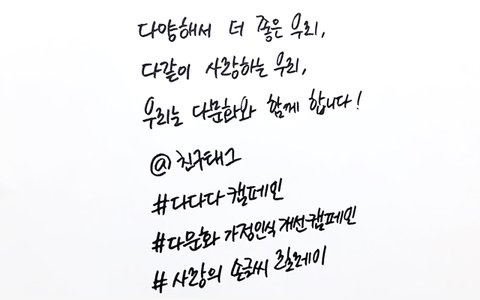 다양해서 더 좋은 우리,
다같이 사랑하는 우리,
우리는 다문화와 함께 합니다!
@친구태그
#다다다캠페인
#다문화 가정인식개선캠페인
#사랑의 손글씨 릴레이